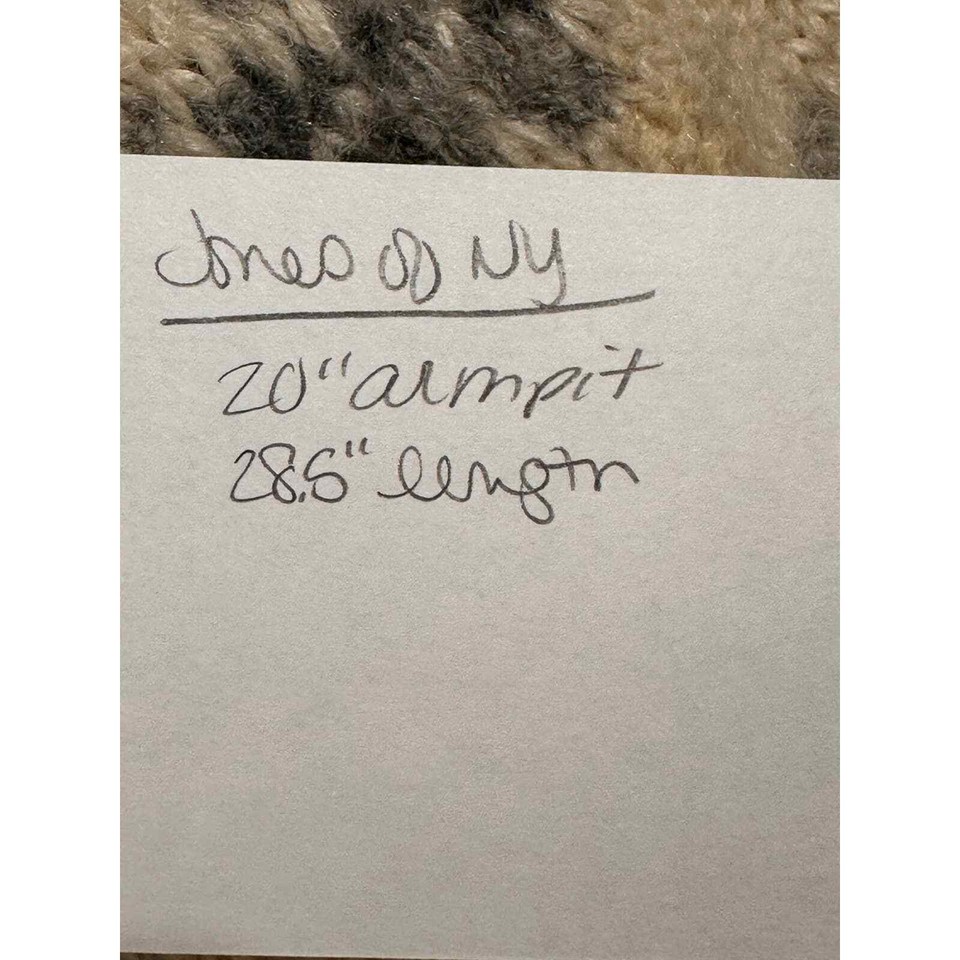 Jones of NY
20" armpit
28.5" length